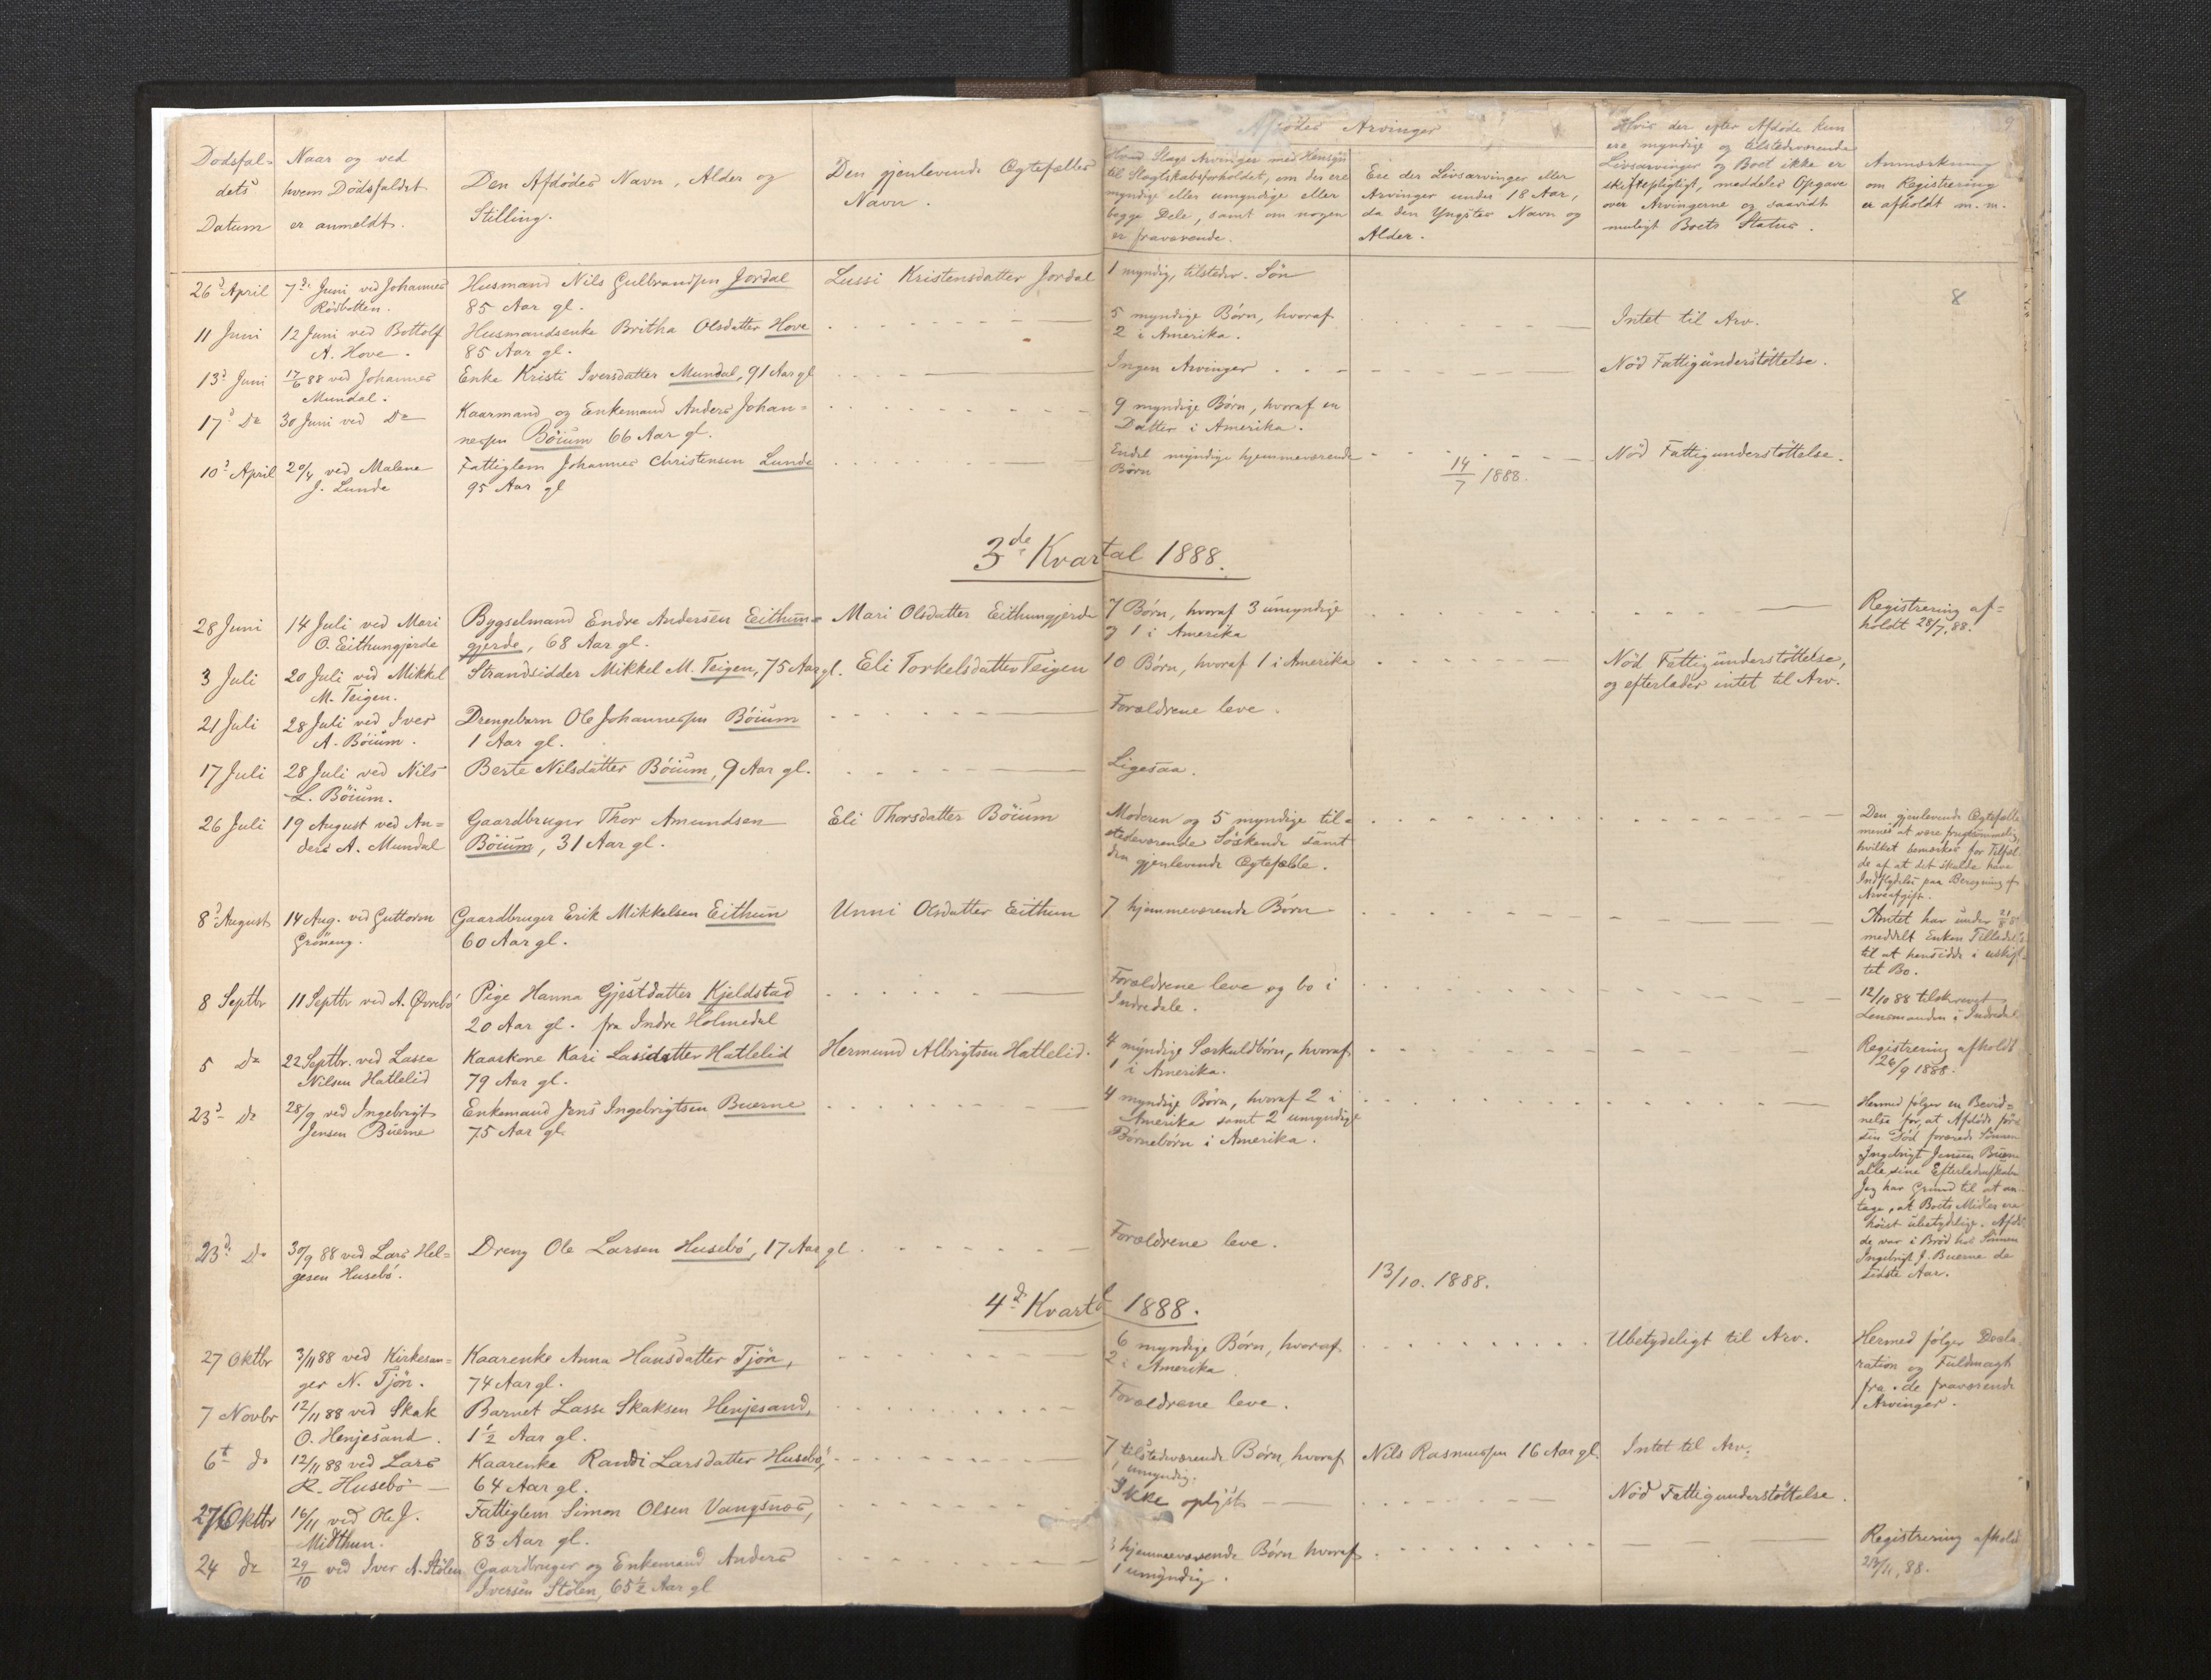 Dødsfal-
dets
Datum
Naar og ved
hvem Dödsfaldet
er anmeldt.
Den Afdödes Navn, Alder og
Stilling.
Den gjenlevende Ægtefælles
Navn.
Afdødes Arvinger
Hvad Slags Arvinger med Hensyn
til Slægtskabsforholdet, om der ere
myndige eller umyndige eller
begge Dele, samt om nogen
er fraværende.
Ere der Livsarvinger eller
Arvinger under 18 Aar,
da den Yngstes Navn og
Alder.
Hvis der efter Afdøde kun
ere myndige og tilstedeværende
Livsarvinger og Boet ikke er
skiftepligtigt, meddeles Opgave
over Arvingerne og saavidt
muligt Boets Status.
Anmærkning
om Registrering
er afholdt m. m.
8
26d April
7de Juni ved Johannes
Rödbotten.
Husmand Nils Gulbrandsen Jordal
85 Aar gl.
Lussi Kristensdatter Jordal
1 myndig, tilstedev. Sön
11 Juni
12 Juni ved Bottolf
A. Hove.
Husmandsenke Britha Olsdatter Hove
85 Aar gl.
5 myndige Börn, hvoraf
2 i Amerika.
Intet til Arv.
13d Juni
17/6 88 ved Johannes
Mundal.
Enke Kristi Iversdatter Mundal, 91 Aar gl
Ingen Arvinger
Nød Fattigünderstöttelse.
17d Do
30 Juni ved Do
Kaarmand og Enkemand Anders Johan=
nessen Böium 66 Aar gl.
9 myndige Börn, hvoraf en
Datter i Amerika.
10d April
20/4 ved Malene
J. Lunde
Fattiglem Johannes Christensen Lunde
95 Aar gl
Endel myndige hjemmeværende
Börn
14/7 1888.
Nöd Fattigunderstöttelse.
3de Kvartal 1888.
28 Juni
14 Juli ved Mari
O. Eithungjerde
Bygselmand Endre Andersen Eithun=
gjerde, 68 Aar gl.
Mari Olsdatter Eithungjerde
7 Börn, hvoraf 3 umyndige
og 1 i Amerika
Registrering af=
holdt 28/7. 88.
3 Juli
20 Juli ved Mikkel
M. Teigen.
Strandsidder Mikkel M. Teigen, 75 Aar gl.
Eli Torkelsdatter Teigen
10 Börn, hvoraf 1 i Amerika
Nöd Fattigünderstöttelse,
og efterlader intet til Arv.
21 Juli
28 Juli ved Iver
A. Böium.
Drengebarn Ole Johannessen Böium
1 Aar gl.
Forældrene leve.
17 Juli
28 Juli ved Nils
L. Böium.
Berte Nilsdatter Böium, 9 Aar gl.
Ligesaa.
26 Juli
19 August ved An=
ders A. Mundal
Gaardbruger Thor Amundsen
Böium, 31 Aar gl.
Eli Thorsdatter Böium
Moderen og 5 myndige til=
stedeværende Söskende samt
den gjenlevende Ægtefælle.
Den gjenlevende Ægtefælle
menes at være frugtsommelig,
hvilket bemærkes for Tilfæl-
de af at det skulde have
Indflydelse paa Beregning af
Arveafgift.
8d August
14 Aug. ved Guttorm
Gröneng.
Gaardbruger Erik Mikkelsen Eithun
60 Aar gl.
Unni Olsdatter Eithun
7 hjemmeværende Börn
Amtet har under 21/8 8
meddelt Enken Tilladelse
til at hensidde i uskif-
tet Bo.
8 Septbr
11 Septbr ved A. Øvrebö
Pige Hanna Gjestdatter Kjeldstad
20 Aar gl. fra Indre Holmedal
Forældrene leve og bo i
Indredale.
12/10 88 tilskrevet
Lensmanden i Indredal
5 Do
22 Septbr. ved Lasse
Nilsen Hatlelid
Kaarkone Kari Lassdatter Hatlelid
79 Aar gl.
Hermund Albrigtsen Hatlelid.
4 myndige Særkuldbörn, hvoraf
1 i Amerika.
Registrering afholdt
26/9 1888.
23d Do
28/9 ved Ingebrigt
Jensen Buerne
Enkemand Jens Ingebrigtsen Buerne
75 Aar gl.
4 myndige Börn, hvoraf 2 i
Amerika samt 2 umyndige
Börnebörn i Amerika.
Hermed følger en Bevid=
nelse for, at Afdöde för
sin Död forærede Sönnen
Ingebrigt Jensen Buerne
alle sine Efterladenskaber
Jeg har Grund til at an-
tage, at Boets Midler ere
höist ubetydelige. Afdö-
de var i Bröd hos Sönnen
Ingebrigt J. Buerne de
sidste Aar.
23d Do
30/9 88 ved Lars Hel=
gesen Husebö.
Dreng Ole Larsen Husebö, 17 Aar gl
Forældrene leve.
13/10. 1888.
4d Kvartal 1888.
27 Oktbr
3/11 88 ved Kirkesan=
ger N. Tjön.
Kaarenke Anna Hansdatter Tjön,
74 Aar gl.
6 myndige Börn, hvoraf
2 i Amerika
Ubetydeligt til Arv.
Hermed følger Decla-
ration og Fuldmagt
fra de fraværende
Arvinger.
7 Novbr
12/11 88 ved Skak
O. Henjesand.
Barnet Lasse Skaksen Henjesand,
1 1/2 Aar gl.
Forældrene leve.
6t do
12/11 88 ved Lars
R. Husebö
Kaarenke Randi Larsdatter Husebö,
64 Aar gl.
7 tilstedeværende Börn, hvoraf
1 umyndig.
Nils Rasmussen 16 Aar gl.
Intet til Arv.
Oktbr
16/11 ved Ole J.
Midthun.
Fattiglem Simon Olsen Vangsnes,
83 Aar gl.
Ikke oplyst
Nöd Fattigunderstöttelse.
24 do
29/10 ved Iver A. Stölen
Gaardbruger og Enkemand Anders
Iversen Stölen, 65 1/2 Aar gl
3 hjemmeværende Börn hvoraf
1 umyndig.
Registrering afhold
/11, 88.